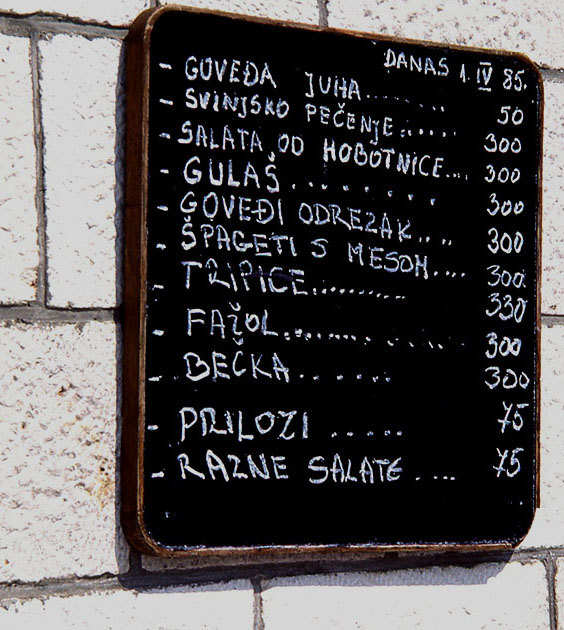 DANAS 1. IV 85.
- GOVEĐA JUHA........ 50
- SVINJSKO PEČENJE...... 300
- SALATA OD HOBOTNICE.... 300
- GULAŠ........ 300
- GOVEĐI ODREZAK.... 300
- ŠPAGETI S MESOM.... 300
- TRIPICE......... 330
- FAŽOL............. 300
- BEČKA...... 300
- PRILOZI ..... 75
- RAZNE SALATE .... 75